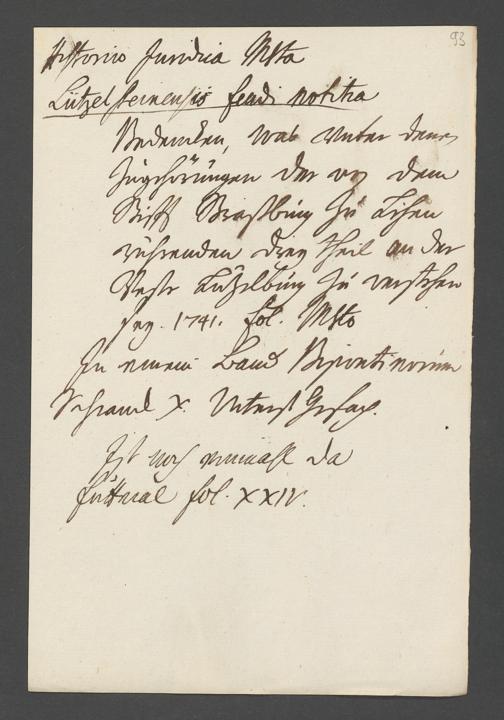 93
Historico Juridica Msta
Lützelsteinensis feudi notitia
Bedencken, was unter denen
Zugehörungen der von dem
Stifft Straßburg zu Lehen
rührenden drey theil an der
Veste Lützelburg zu verstehen
sey. 1741. fol. Msto
In einem Band Bipontinorum
Schranck X. Unterst Gefach.
Ist noch einmahl da
fol. XXIV.